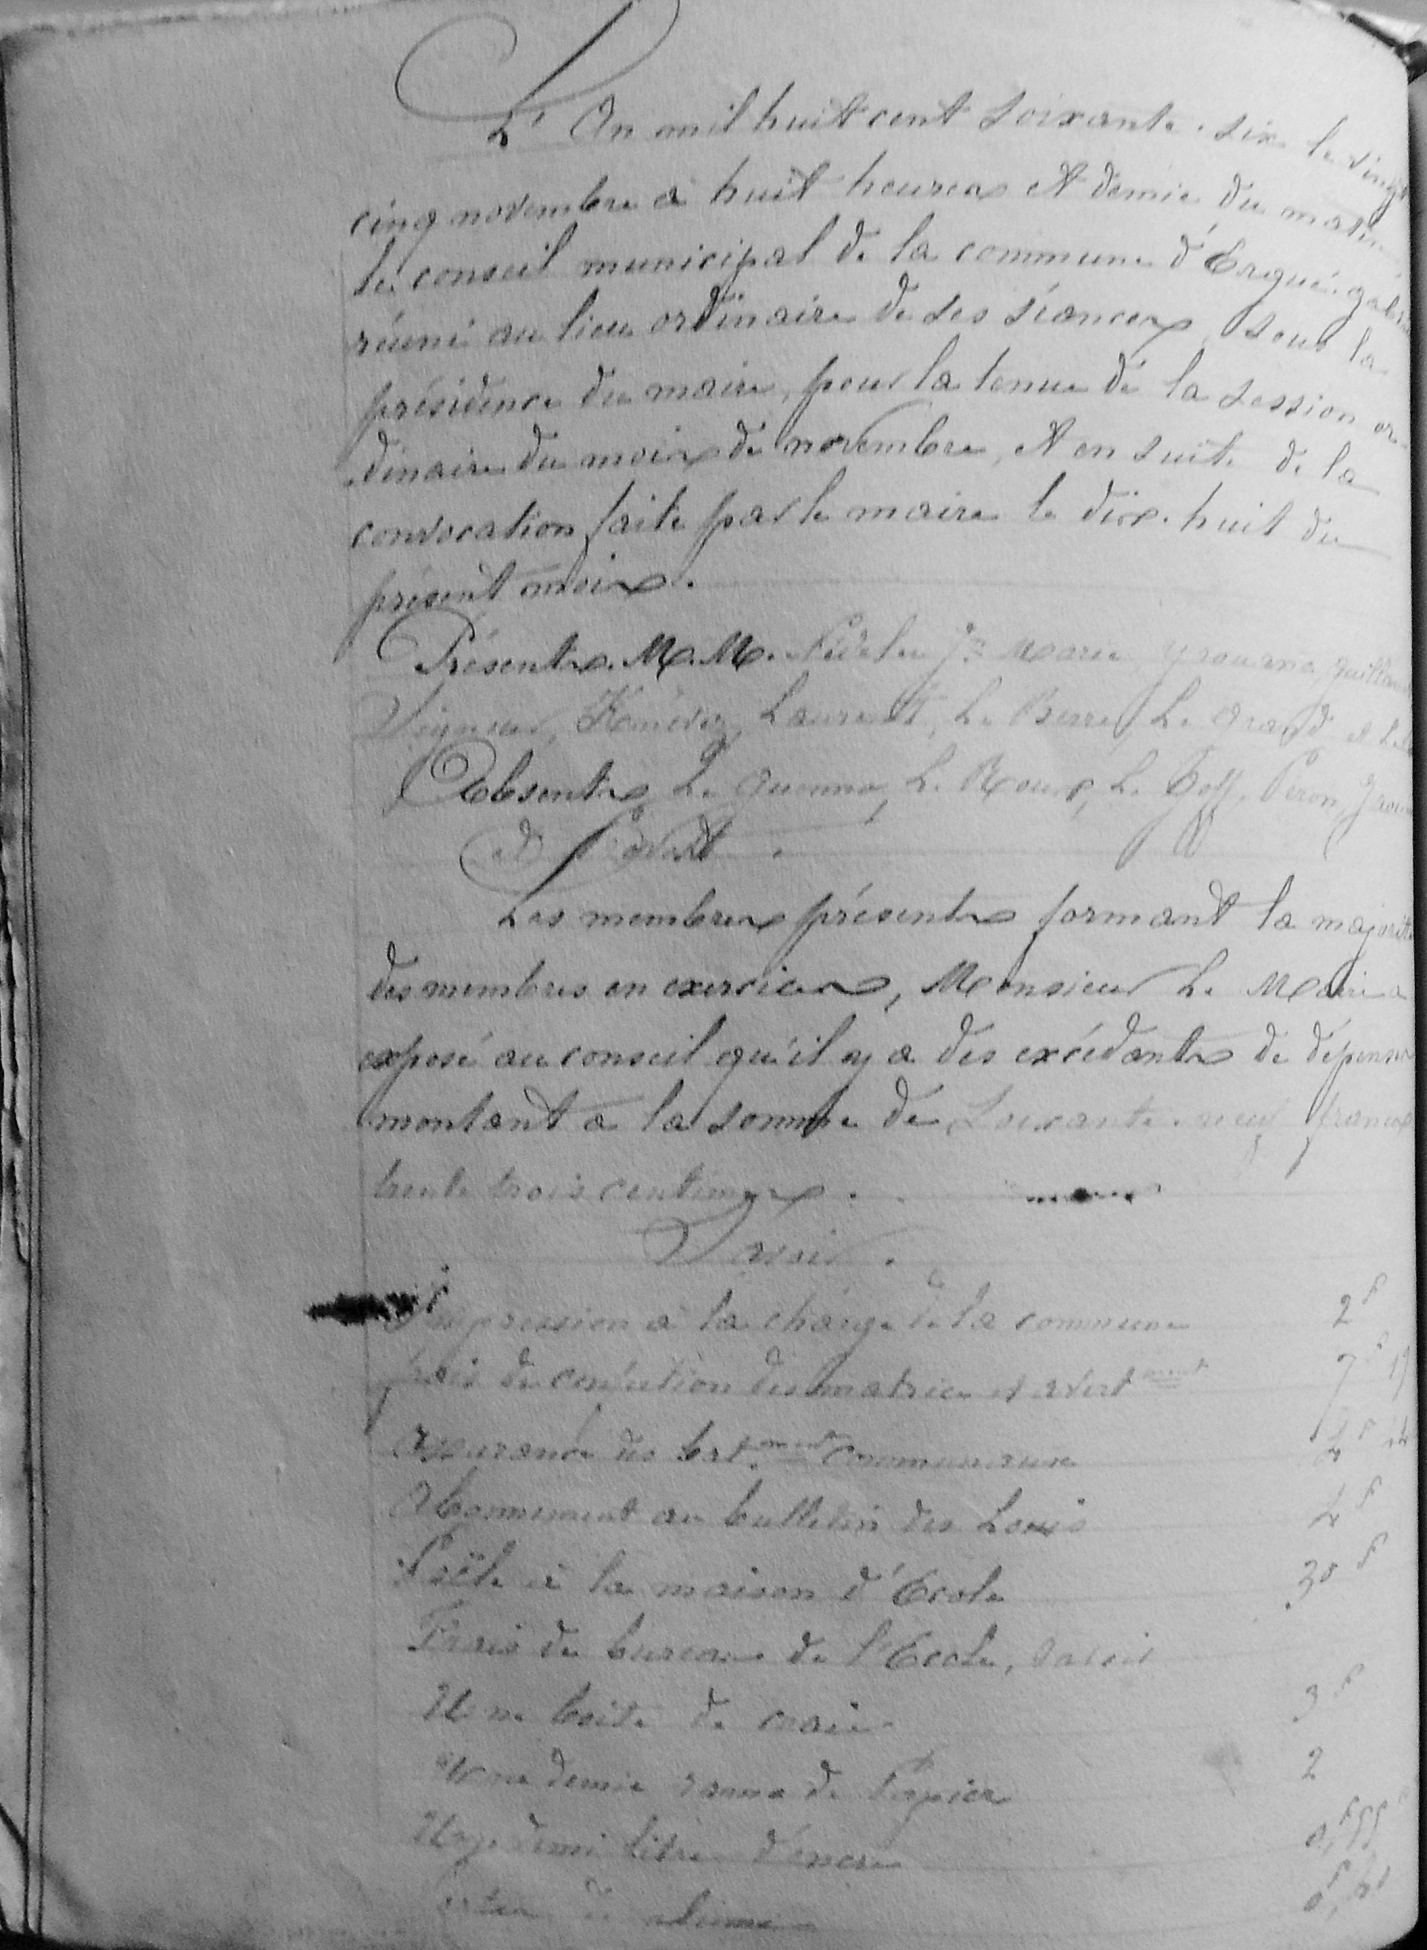 L'An mil huit cent soixante-six le vingt
cinq novembre à huit heures et demie du matin
le conseil municipal de la commune d'Ergué-gabé
réuni au lieu ordinaire de ses séances, sous la
présidence du maire, pour la tenue de la session or-
dinaire du mois de novembre, et en suite de la
convocation faite par le maire le dix-huit du
présent mois.
Présents. M.M. Jn Marie guillaume
Laurent, Le Berre, Le Grand et
Absents Le Guenno, Le Roux, Le Goff, Peron,
et
Les membres présents formant la majorité
des membres en exercice, Monsieur Le Maire a
exposé au conseil qu'il y a des excédants de dépenses
montant a la somme de Soixante-neuf francs
trente trois centimes.
Savoir.
Impression à la charge de la commune 2f
frais de confection des matrices et avertment 7f 19
assurance des batments communaux 4f
Abonnement au bulletin des Lois 4f
Poële à la maison d'Ecole 30f
Frais de bureau de l'Ecole, savoir
Une boite de craie 3f
Une demie rame de Papier 2
Un demi litre d'encre 0,f55
de plumes